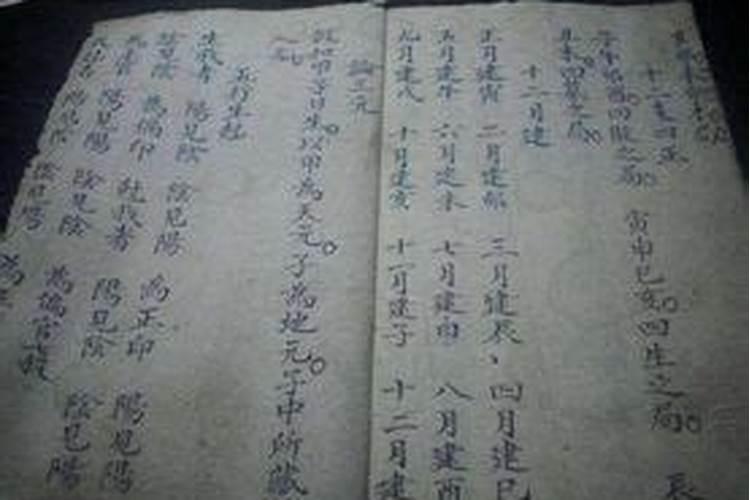 十二支四正
子午卯酉。四敗之局。 寅申巳亥。四生之局。 辰
丑未。四墓之局。
十二月建
正月建寅 二月建卯 三月建辰、 四月建巳
五月建午 六月建未 七月建申 八月建酉
九月建戌 十月建亥 十一月建子 十二月建
論三元
甲子日生。以甲為天元。子為地元。子中所藏
五行生尅
生我者 陽見陰 陰見陽 為正印 陽見陽
陰見陰 為偏印 尅我者 陽見陰 陰見陽
為正官 陽見陽 陰見陰 為偏官